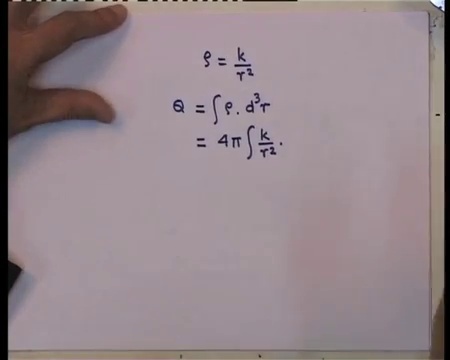 ρ = k/r²
Q = ∫ρ. d³r
= 4π∫k/r².